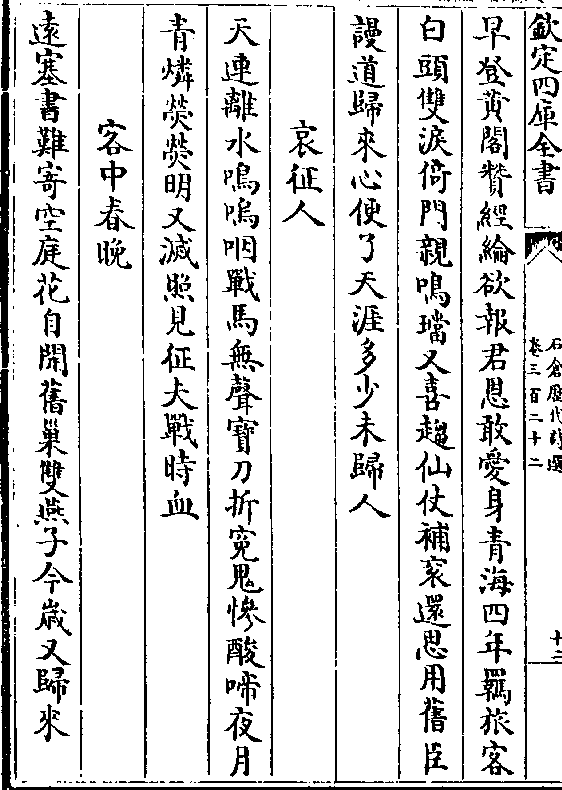 欽定四庫全書
石倉歷代詩選
卷三百二十二
十二
早登黃閣贊經綸欲報君恩敢愛身青海四年羈旅客
白頭雙淚倚門親鳴璫又喜趨仙仗補衮還思用舊臣
謾道歸來心便了天涯多少未歸人
哀征人
天連離水嗚嗚咽戰馬無聲寶刀折寃鬼慘酸啼夜月
青燐熒熒明又滅照見征夫戰時血
客中春晚
遠塞書難寄空庭花自開舊巢雙燕子今歲又歸來